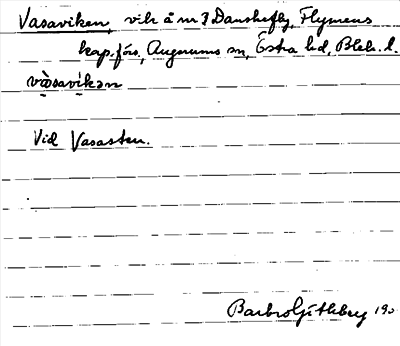 Vasaviken, vik å nr 3 Danskefly, Flymens
kap. förs, Augerums sn, Östra hd, Blek. l.
vàsavìkən
Vid Vasasten.
Barbro Guthberg 190